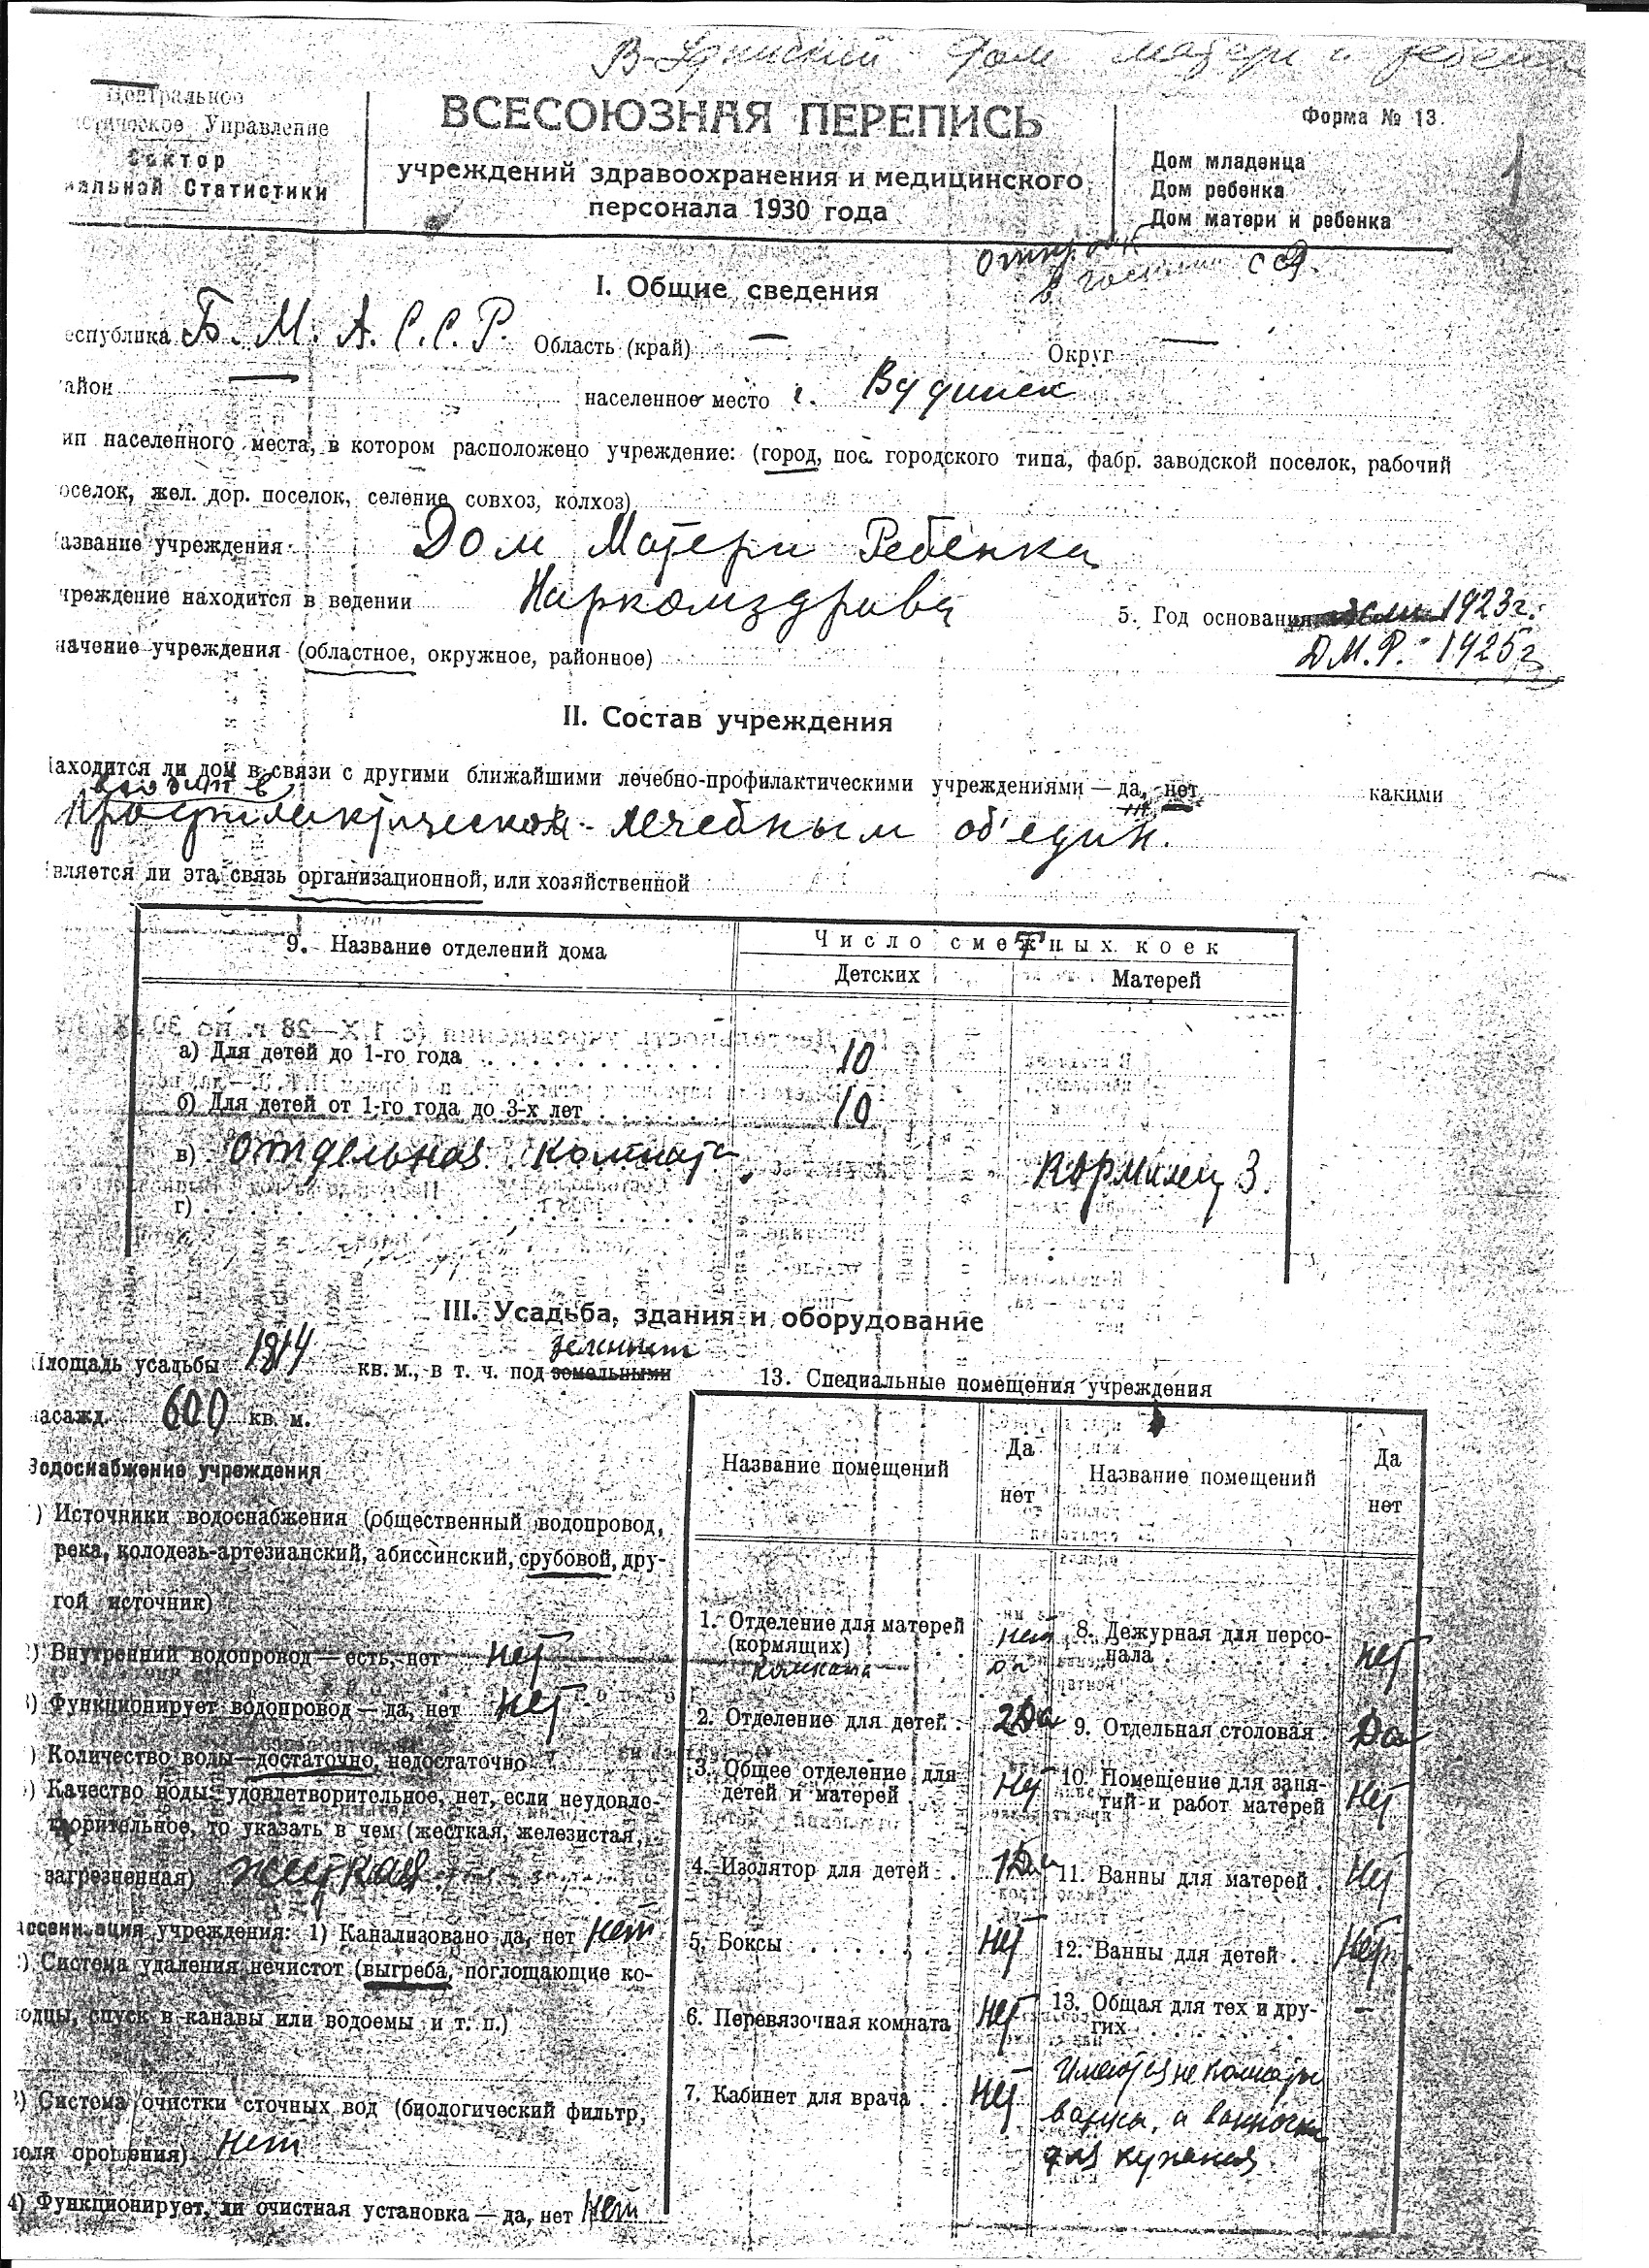 В-Удинский Дом матери и ребенка
Центральное
Управление
Сектор
Статистики
ВСЕСОЮЗНАЯ ПЕРЕПИСЬ
учреждений здравоохранения и медицинского
персонала 1930 года
Форма № 13.
Дом младенца
Дом ребенка
Дом матери и ребенка
1
I. Общие сведения
еспублика Б. М. А. С. С. Р. Область (край) — Округ —
айон — населенное место г. Вудинск
ип населенного места, в котором расположено учреждение: (город, пос. городского типа, фабр. заводской поселок, рабочий
оселок, жел. дор. поселок, селение, совхоз, колхоз)
азвание учреждения Дом Матери Ребенка
чреждение находится в ведении Наркомздрава 5. Год основания 1923г.
начение учреждения (областное, окружное, районное) Д.М.Р. - 1925г
II. Состав учреждения
аходится ли дом в связи с другими ближайшими лечебно-профилактическими учреждениями — да, нет какими
входит в
профилактическом - лечебным об'един.
вляется ли эта связь организационной, или хозяйственной
9. Название отделений дома Число сметных коек
Детских Матерей
а) Для детей до 1-го года 10
б) Для детей от 1-го года до 3-х лет 10
в) отдельная комната кормилец 3.
г)
III. Усадьба, здания и оборудование
зеленым
лощадь усадьбы 1814 кв. м., в т. ч. под земельными
асажд. 600 кв. м.
13. Специальные помещения учреждения
Название помещений Да нет Название помещений Да нет
Водоснабжение учреждения
) Источники водоснабжения (общественный водопровод,
река, колодезь-артезианский, абиссинский, срубовой, дру-
гой источник)
) Внутренний водопровод — есть, нет нет
) Функционирует водопровод — да, нет нет
) Количество воды — достаточно, недостаточно
) Качество воды: удовлетворительное, нет, если неудовле-
творительное, то указать в чем (жесткая, железистая,
загрезненная) жесткая
ассенизация учреждения: 1) Канализовано да, нет нет
) Система удаления нечистот (выгреба, поглощающие ко-
одцы, спуск в канавы или водоемы и т. п.)
) Система очистки сточных вод (биологический фильтр,
оля орошения) нет
4) Функционирует, ли очистная установка — да, нет нет
1. Отделение для матерей
(кормящих) нет
комната
2. Отделение для детей 2 Да
3. Общее отделение для
детей и матерей Нет
4. Изолятор для детей 1 Да
5. Боксы Нет
6. Перевязочная комната Нет
7. Кабинет для врача Нет
8. Дежурная для персо-
нала нет
9. Отдельная столовая Да
10. Помещение для заня-
тий и работ матерей Нет
11. Ванны для матерей Нет
12. Ванны для детей Нет
13. Общая для тех и дру-
гих —
Имеются не комнаты
ванны, а ванночки
для купания